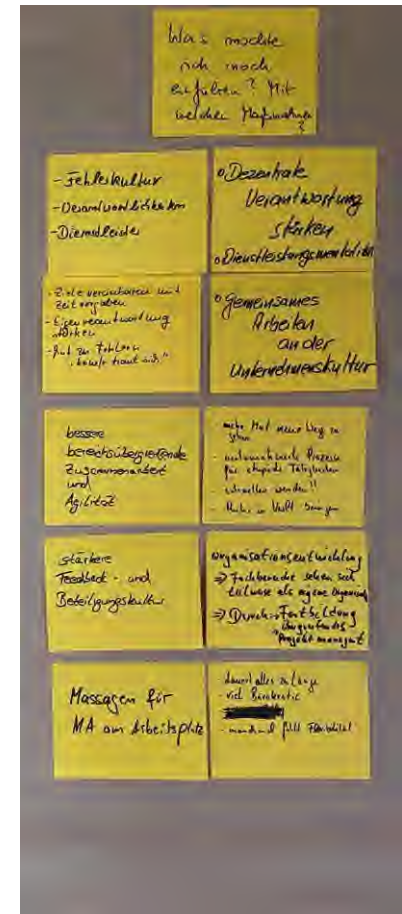 Was möchte
ich noch
einführen? Mit
welchen Maßnahmen
?
- Fehlerkultur
- Verantwortlichkeiten
- Dienstleister
o Dezentrale
Verantwortung
stärken
o Dienstleistungsmentalität
- Ziele vereinbaren mit
Zeitvorgaben
- Eigenverantwortung
stärken
- Mut zu Fehlern
traut sich"
o Gemeinsames
Arbeiten
an der
Unternehmenskultur
bessere
bereichsübergreifende
Zusammenarbeit
und
Agilität
mehr Mut neue Weg zu
- automatisierte Prozesse
für stupide Tätigkeiten
- schneller werden!!
stärkere
Feedback- und
Beteiligungskultur
Organisationsentwicklung
⇒ Fachbereiche sehen sich
teilweise als eigene
⇒ Fortbildung
Projektmanagemt
Massagen für
MA am Arbeitsplatz
dauert alles zu lange
- viel Bürokratie
- manchmal fehlt Flexibilität